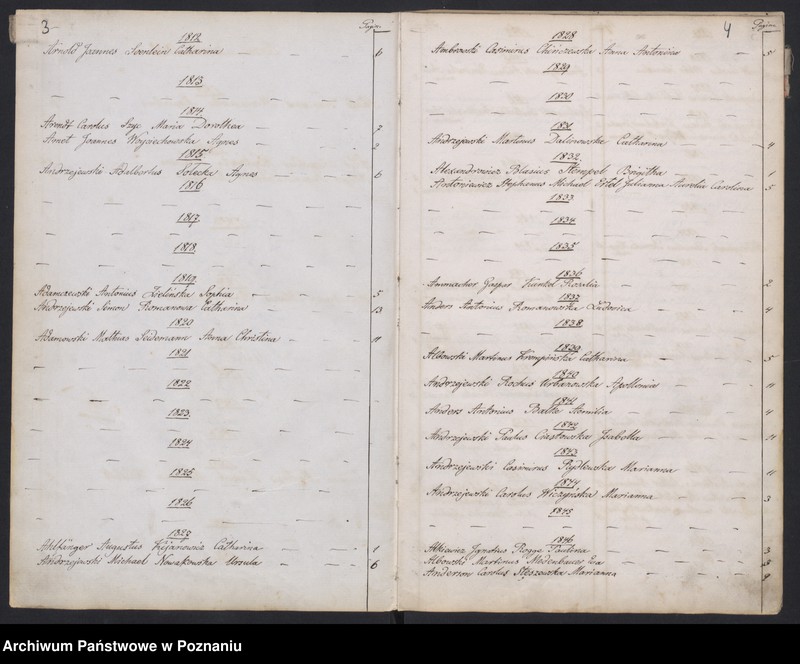 3
Pagina
1812
Arnold Joannes Soenlein Catharina — 6
1813
— — — — — — —
1814
Arendt Carolus Szyc Maria Dorothea — 7
Arnot Joannes Woyciechowska Agnes — 2
1815
Andrzejewski Adalbertus Solecka Agnes — 6
1816
— — — — — — —
1817
— — — — — — —
1818
— — — — — — —
1819
Adamczewski Antonius Zielinska Sophia — 5
Andrzejewski Simon Romanowa Catharina — 13
1820
Adamowski Mathias Seidemann Anna Christina — 11
1821
— — — — — — —
1822
— — — — — — —
1823
— — — — — — —
1824
— — — — — — —
1825
— — — — — — —
1826
— — — — — — —
1827
Ahlfänger Augustus Kijanowicz Catharina — 1
Andrzejewski Michael Nowakowska Ursula — 6
4
Pagina
1828
Ambrowski Casimirus Anna Antonina — 5
1829
— — — — — — —
1830
— — — — — — —
1831
Andrzejewski Martinus Catharina — 4
1832
Alexandrowicz Blasius Stempel Brigitta — 1
Antoniewicz Stephanus Michael Ertel Julianna Aurelia Carolina 5
1833
— — — — — — —
1834
— — — — — — —
1835
— — — — — — —
1836
Gaspar Kunkel Rosalia — 2
1837
Anders Antonius Romanowska Ludovica — 4
1838
— — — — — — —
1839
Albowski Martinus Krempińska Catharina — 5
1840
Andrzejewski Rochus Urbanowska Apollonia — 11
1841
Anders Antonius Balke Aemilia — 4
1842
Andrzejewski Paulus Ciastowska Isabella — 11
1843
Andrzejewski Casimirus Rydlewska Marianna — 11
1844
Andrzejewski Carolus Wiczyńska Marianna — 3
1845
— — — — — — —
1846
Alkiewicz Ignatius Rogge Paulina — 3
Albowski Martinus Niedenbauer Eva — 13
Anderson Carolus Stęszewska Marianna — 9
Archiwum Państwowe w Poznaniu